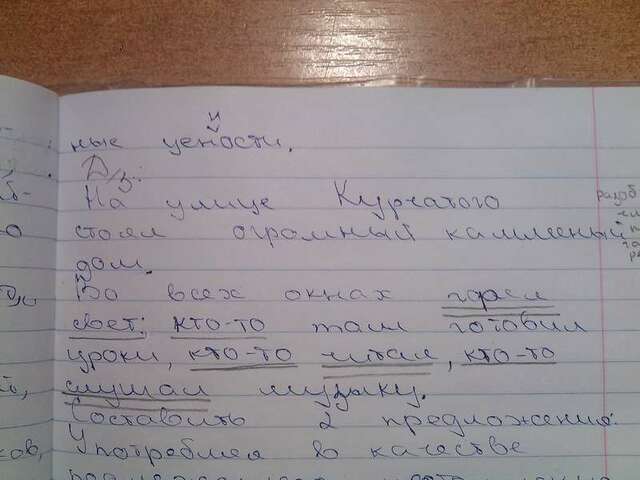 н
ные цености.
Д/з:
На улице Курчатого
стоял огромный камменый
дом.
Во всех окнах горел
свет: кто-то там готовил
уроки, кто-то читал, кто-то
слушал музыку.
Составить 2 предложения.
Употреблея в качестве
разоб